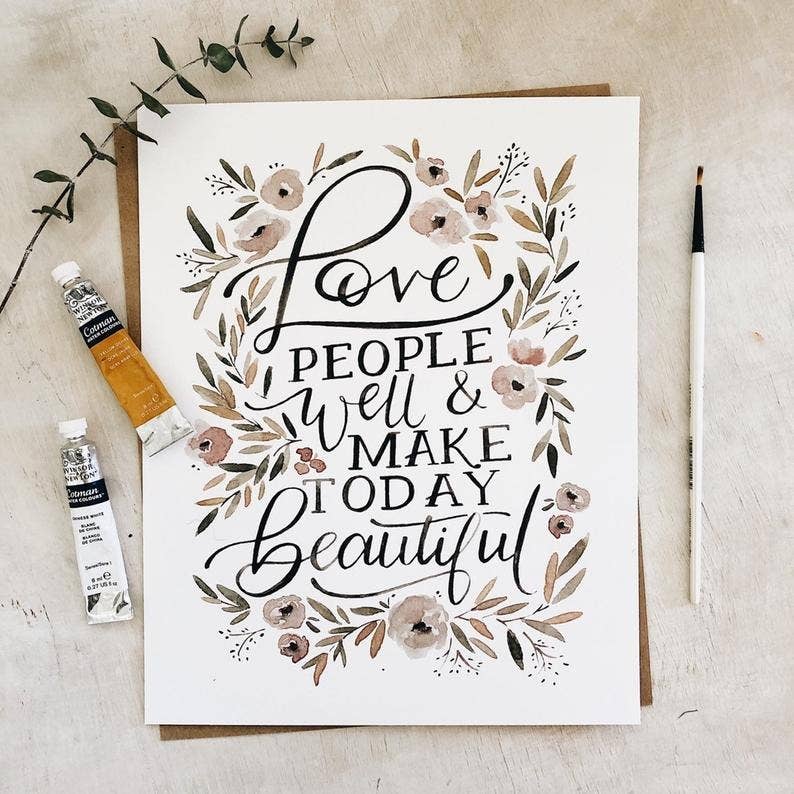 Love
PEOPLE
well &
MAKE
TODAY
beautiful
WINSOR
& NEWTON
Cotman
WATER COLOURS
WINSOR
& NEWTON
Cotman
WATER COLOURS
CHINESE WHITE
BLANC
DE CHINE
BLANCO
DE CHINA
Series/Série 1
8 ml e
0.27 US fl oz